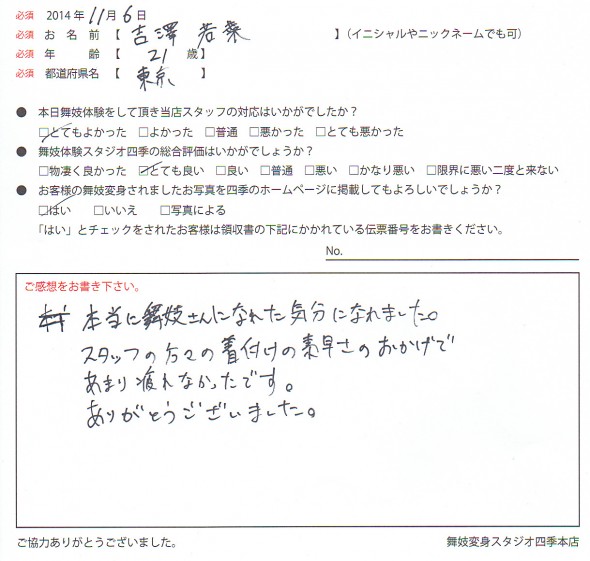 必須 2014年11月6日
必須 お名前【 吉澤 若菜 】(イニシャルやニックネームでも可)
必須 年齢【 21 歳】
必須 都道府県名【 東京 】
● 本日舞妓体験をして頂き当店スタッフの対応はいかがでしたか?
□とてもよかった □よかった □普通 □悪かった □とても悪かった
● 舞妓体験スタジオ四季の総合評価はいかがでしょうか?
□物凄く良かった □とても良い □良い □普通 □悪い □かなり悪い □限界に悪い二度と来ない
● お客様の舞妓変身されましたお写真を四季のホームページに掲載してもよろしいでしょうか?
□はい □いいえ □写真による
「はい」とチェックをされたお客様は領収書の下記にかかれている伝票番号をお書きください。
No.
ご感想をお書き下さい。
本当に舞妓さんになれた気分になれました。
スタッフの方々の着付けの素早さのおかげで
あまり疲れなかったです。
ありがとうございました。
ご協力ありがとうございました。 舞妓変身スタジオ四季本店